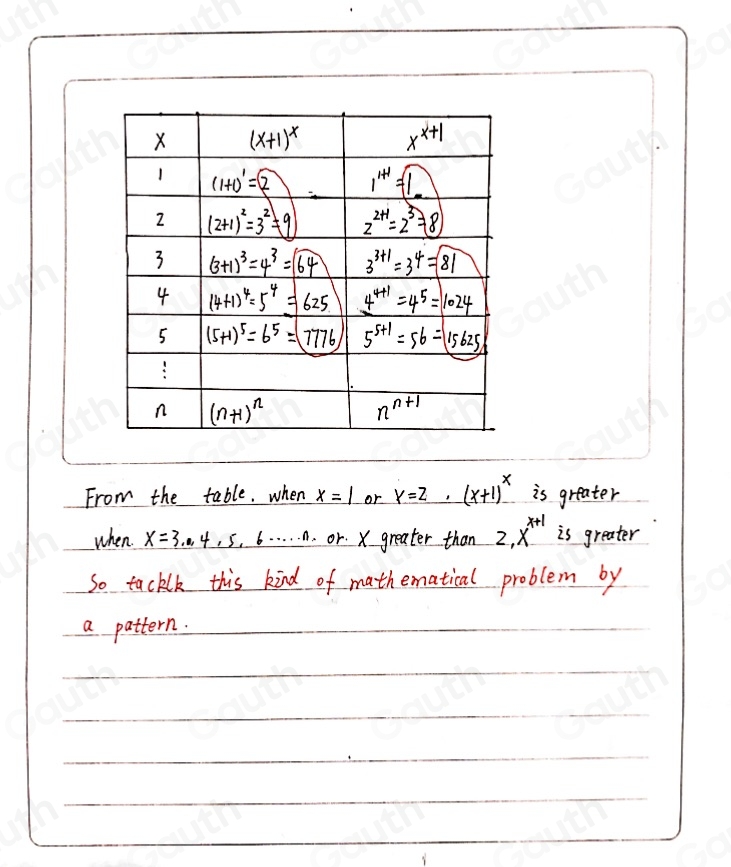 x (x+1)^x x^{x+1}
1 (1+1)^1=2 1^{1+1}=1
2 (2+1)^2=3^2=9 2^{2+1}=2^3=8
3 (3+1)^3=4^3=64 3^{3+1}=3^4=81
4 (4+1)^4=5^4=625 4^{4+1}=4^5=1024
5 (5+1)^5=6^5=7776 5^{5+1}=56=15625
⋮
n (n+1)^n n^{n+1}
From the table. when x=1 or x=2, (x+1)^x is greater
when x=3, 4, 5, 6 ..... n. or x greater than 2, x^{x+1} is greater
So tacklk this kind of mathematical problem by
a pattern.